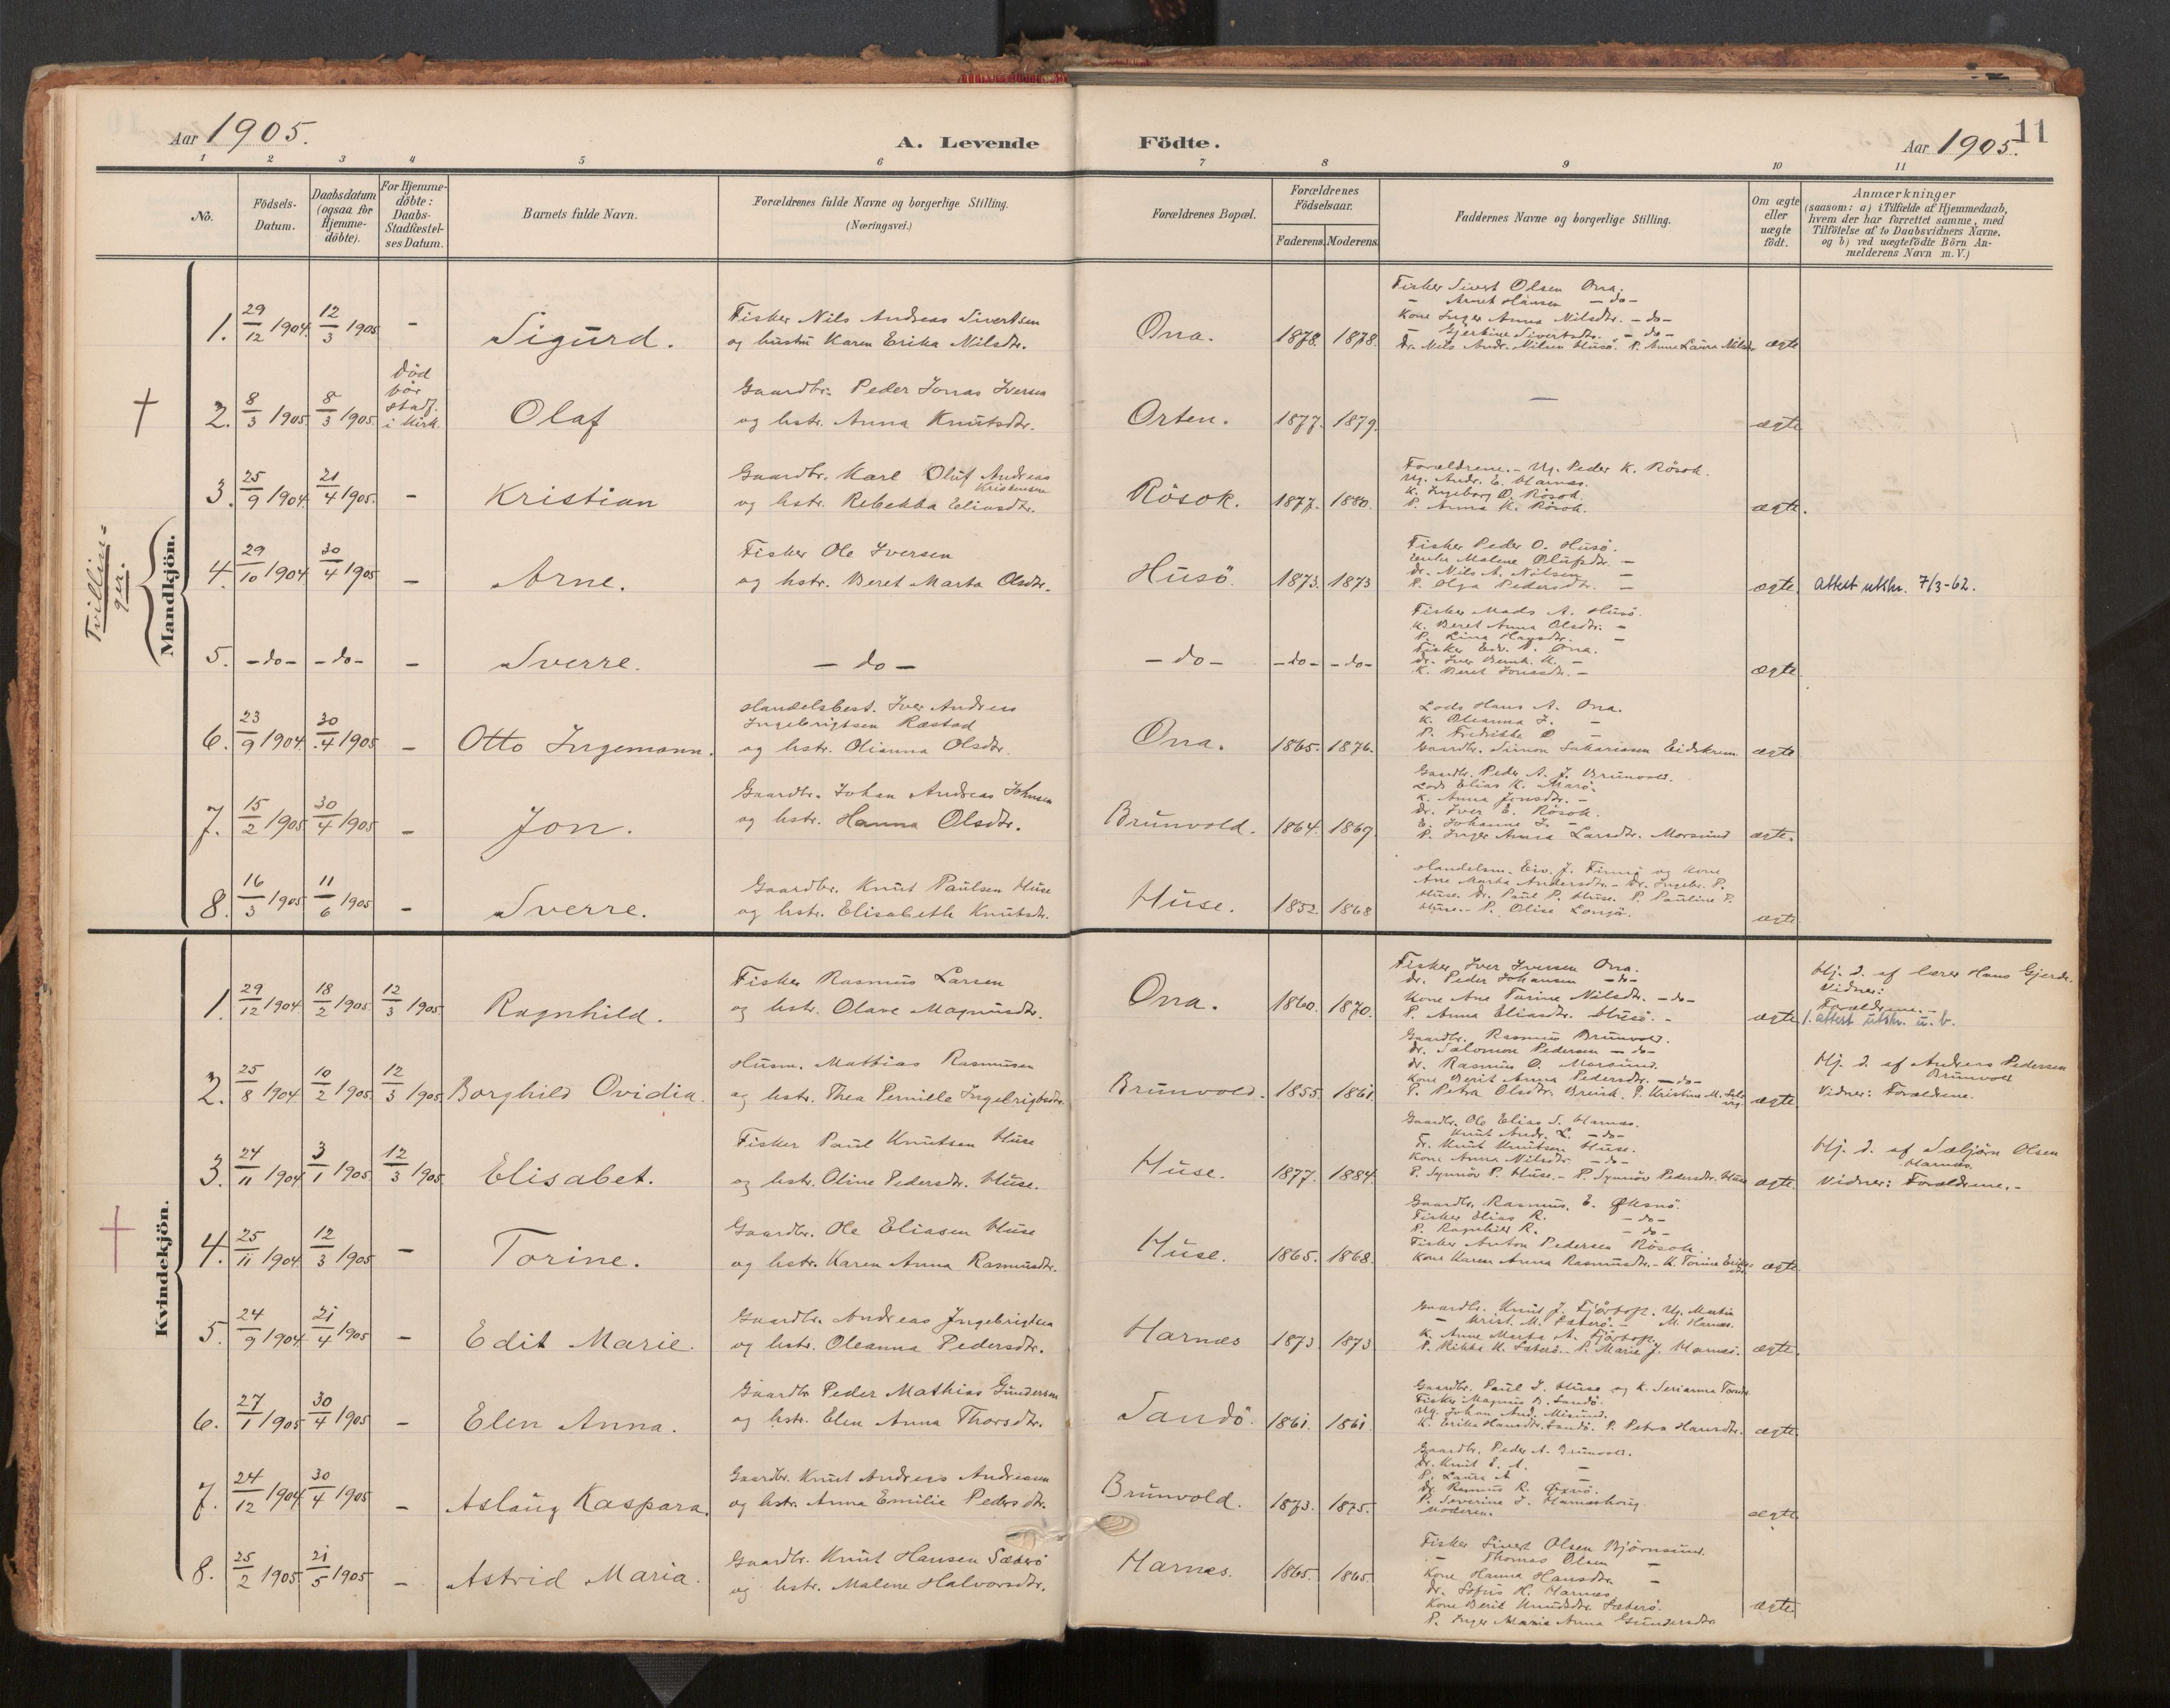 Aar 1905.
A. Levende Födte.
Aar 1905.
11
1 2 3 4 5 6 7 8 9 10 11
No.
Födsels-
Datum.
Daabsdatum
(ogsaa for
Hjemme-
döbte).
For Hjemme-
döbte:
Daabs-
Stadfæstel-
ses Datum.
Barnets fulde Navn.
Forældrenes fulde Navne og borgerlige Stilling.
(Næringsvei.)
Forældrenes Bopæl.
Forældrenes
Födselsaar.
Faderens. Moderens.
Faddernes Navne og borgerlige Stilling.
Om ægte
eller
uægte
födt.
Anmærkninger
(saasom: a) i Tilfælde af Hjemmedaab,
hvem der har forrettet samme, med
Tilföielse af to Daabsvidners Navne.
og b) ved uægtefödte Börn An-
melderens Navn m. V.)
Mandkjön.
Tvillin-
ger.
1. 29/12 1904. 12/3 1905 - Sigurd.
Fisker Nils Andreas Sivertsen
og hustru Karen Erika Nilsdtr.
Ona. 1878. 1878.
Fisker Sivert Olsen Ona.
- Arnet Hansen - do -
Kone Inger Anna Nilsdtr. - do -
- Gjertine Sivertsdtr. - do -
Dr. Nils Andr. Nilsen Husö. P. Anne Laura Nilsdr
ægte
† 2. 8/3 1905 8/3 1905.
död
för
stadf.
i Kirk.
Olaf
Gaardbr. Peder Jonas Iversen
og hstr. Anna Knutsdtr.
Orten. 1877. 1879.
—
ægte
3. 25/9 1904. 21/4 1905. - Kristian
Gaardbr. Karl Oluf Andreas
Kristensen
og hstr. Rebekka Eliasdtr.
Rösok. 1877. 1880.
Forældrene. - Ug. Peder K. Rösok.
Ug. Andr. E. Harnæs.
K. Ingeborg O. Rösok.
P. Anna K. Rösok.
ægte.
4. 29/10 1904 30/4 1905 - Arne.
Fisker Ole Iversen
og hstr. Beret Marta Olsdtr.
Husö. 1873. 1873
Fisker Peder O. Husö.
Malene Olufsdtr. -
Dr. Nils A. Nilsen -
P. Olga Pedersdtr. -
ægte.
Attest utskr. 7/3-62.
5. - do - - do - - Sverre.
- do -
- do - - do - - do -
Fisker Mads A. Husö.
K. Beret Anna Olsdtr. -
P. Lina Hansdtr. -
Fisker Edv. P. Ona.
Dr. Iver Bernh. K. -
K. Beret Jonasdtr. -
ægte
6. 23/9 1904. 30/4 1905 - Otto Ingemann.
Handelsbest. Iver Andreas
Ingebrigtsen Rastad
og hstr. Olianna Olsdtr.
Ona. 1865. 1876.
Lods Hans A. Ona.
K. Oleanna J. -
P. Fredrikke O -
Gaardbr. Simon Sakariasen Eidskrem
ægte
7. 15/2 1905 30/4 1905 - Jon.
Gaardbr. Johan Andreas Johnsen
og hstr. Hanna Olsdtr.
Brunvold. 1864. 1869.
Gaardbr. Peder A. J. Brunvold.
Lods Elias K. Marö.
K. Anna Jonsdtr. -
Dr. Iver E. Rösok.
E. Johanne J. -
P. Inger Anna Larsdtr. Morsund
ægte.
8. 16/3 1905 11/6 1905 - Sverre.
Gaardbr. Knut Paulsen Huse
og hstr. Elisabeth Knutsdtr.
Huse. 1852. 1868
Handelsm. Eiv. J. Finnö og Kone
Ane Marta Andersdtr. - Dr. Ingebr. P.
Huse. Dr. Paul P. Huse. P. Pauline P.
Huse. - P. Olise Longö.
ægte
Kvindekjön.
1. 29/12 1904. 18/2 1905. 12/3 1905. Ragnhild.
Fisker Rasmus Larsen
og hstr. Olave Magnusdtr.
Ona. 1860. 1870.
Fisker Iver Iversen Ona.
Dr. Peder Johansen - do -
Kone Ane Tarine Nilsdtr. - do -
P. Anna Eliasdtr. Husö. -
ægte
Hj. d. af lærer Hans Gjerde.
Vidner:
Forældrene. -
1. attest utskr. u. b.
2. 25/8 1904 10/2 1905. 12/3 1905 Borghild Ovidia.
Husm. Mathias Rasmussen
og hstr. Thea Pernille Ingebrigtsdtr.
Brunvold. 1855. 1861.
Gaardbr. Rasmus Brunvold.
Dr. Salomon Pedersen - do -
Dr. Rasmus O. Morsund.
Kone Berit Anna Pedersdtr. - do -
P. Petra Olsdtr. Breivik. P. Kristine M.
ægte
Hj. d. af Anders Pedersen
Brunvold
Vidner: Forældrene.
3. 24/11 1904 3/1 1905. 12/3 1905. Elisabet.
Fisker Paul Knutsen Huse
og hstr. Oline Pedersdtr. Huse.
Huse. 1877. 1884.
Gaardbr. Ole Elias S. Harnæs.
Knut Andr. L. - do -
Fr. Knut Knutsen Huse.
Kone Anna Nilsdtr. - do -
P. Synnöv P. Huse. - P. Synnöv Pedersdtr. Huse
ægte.
Hj. d. af Sæbjörn Olsen
Harnæs.
Vidner: Forældrene. -
† 4. 25/11 1904 12/3 1905 - Torine.
Gaardbr. Ole Eliasen Huse
og hstr. Karen Anna Rasmusdtr.
Huse. 1865. 1868.
Gaardbr. Rasmus. E. Øksnö.
Fisker Elias R. - do -
P. Ragnhild R. - do -
Fisker Anton Pedersen Rösok.
Kone Karen Anna Rasmusdtr. - K. Torine
ægte.
5. 24/9 1904. 21/4 1905 - Edit Marie.
Gaardbr. Andreas Ingebrigtsen
og hstr. Oleanna Pedersdtr.
Harnæs 1873 1873
Gaardbr. Knut J. Fjörtoft. Ug. Martin
- Krist. M. Sæterö. - M. Harnæs.
K. Anne Marta A. Fjörtoft.
P. Rikka K. Sæterö. - P. Marie J. Harnæs.
ægte.
6. 27/1 1905 30/4 1905 - Elen Anna.
Gaardbr Peder Mathias Gundersen
og hstr. Elen Anna Thorsdtr.
Sandö. 1861. 1861.
Gaardbr. Paul J. Huse og K. Serianna
Fisker Magnus B. Sandö.
Ug. Johan And. Misund.
K. Erika Hansdtr. Sandö. P. Petra Hansdtr.
ægte.
7. 24/12 1904 30/4 1905 - Aslaug Kaspara.
Gaardbr. Knut Andreas Andreasen
og hstr. Anna Emilie Pedersdtr.
Brunvold. 1873. 1875.
Gaardbr. Peder A. Brunvold.
Dr. Knut E. A. -
P. Laura A -
Dr. Rasmus R. Øxnö.
P. Severine J. Harnæshaug.
Moderen.
ægte
8. 25/2 1905 21/5 1905 - Astrid Maria.
Gaardbr. Knut Hansen Sæterö
og hstr. Malene Halvorsdtr.
Harnæs. 1865. 1865.
Fisker Sivert Olsen Björnsund.
- Thomas Olsen -
Kone Hanna Hansdtr. -
Dr. Sofus H. Harnæs
Kone Berit Knudsdtr. Sæterö.
P. Inger Marie Anna Gundersdtr
ægte.